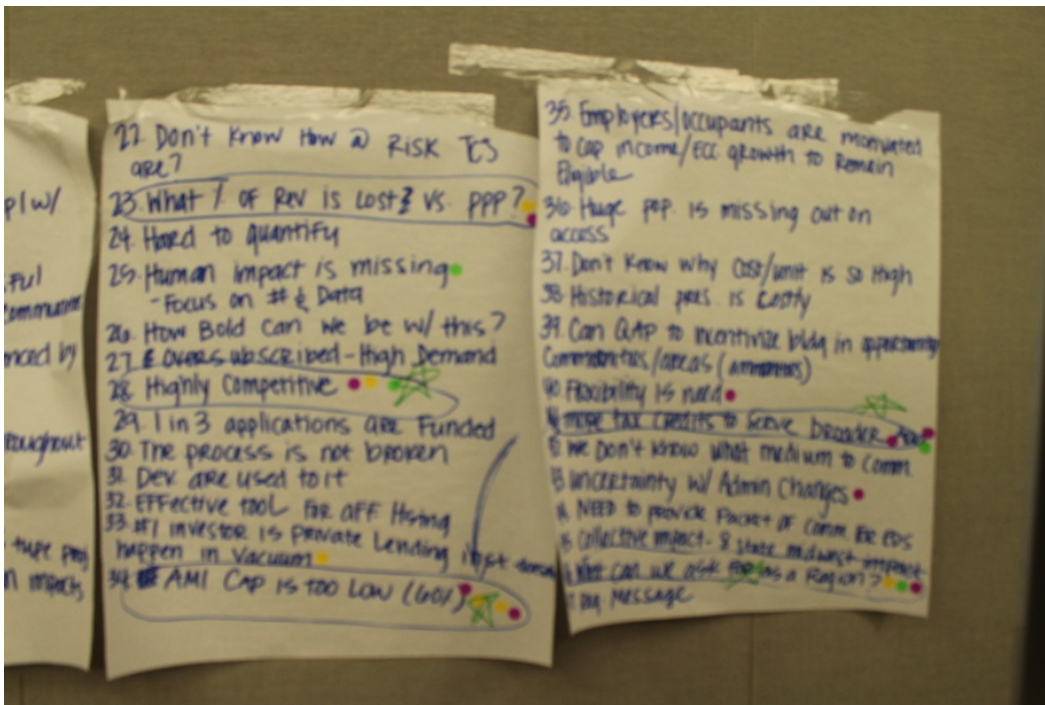 p/w/
Ful
Communi
nced by
roughout
type proj
n impacts
22. Don't Know How @ RISK TCS
are?
23. What % OF Rev is Lost? vs. PPP?
24. Hard to quantify
25. Human impact is missing
- Focus on # & Data
26. How Bold can we be w/ this?
27. Oversubscribed - High Demand
28. Highly Competitive
29. 1 in 3 applications are Funded
30. The process is not broken
31. Dev are used to it
32. Effective tool for aff Hsing
33. #1 investor is Private Lending inst
happen in Vacuum
34. AMI Cap is too Low (60%)
35. Employers/occupants are motivated
to cap income/ECC growth to Remain
Eligible
36. Huge pop. is missing out on
access
37. Don't Know why cost/unit is so High
38. Historical pres. is costly
39. Can QAP to incentivize bldg in opportunity
Communities/areas (ammenities)
40. Flexibility is need
more tax credits to serve broader
we Don't know what medium to Comm.
uncertainty w/ Admin Changes
NEED to provide Packet of Comm. for EDS
Collective impact - 8 state midwest impact
What can we ask for as a Region?
Message